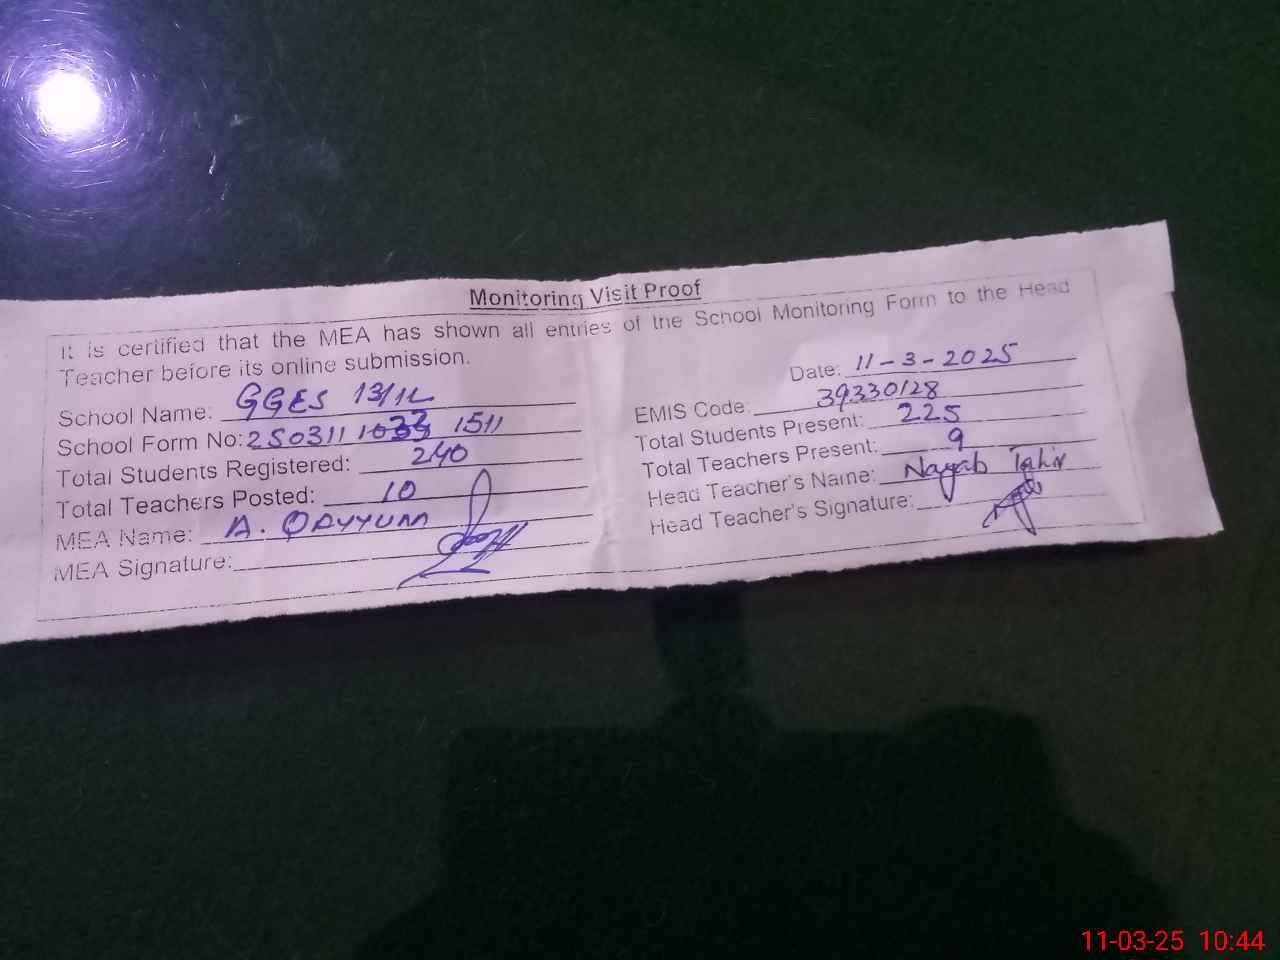 Monitoring Visit Proof
It is certified that the MEA has shown all entries of the School Monitoring Form to the Head
Teacher before its online submission.
Date: 11-3-2025
School Name: GGES 13/1L
EMIS Code: 39330128
School Form No: 2503111033 1511
Total Students Present: 225
Total Students Registered: 240
Total Teachers Present: 9
Total Teachers Posted: 10
Head Teacher's Name: Nayab Tahir
MEA Name: A. QAYYUM
Head Teacher's Signature:
MEA Signature:
11-03-25 10:44